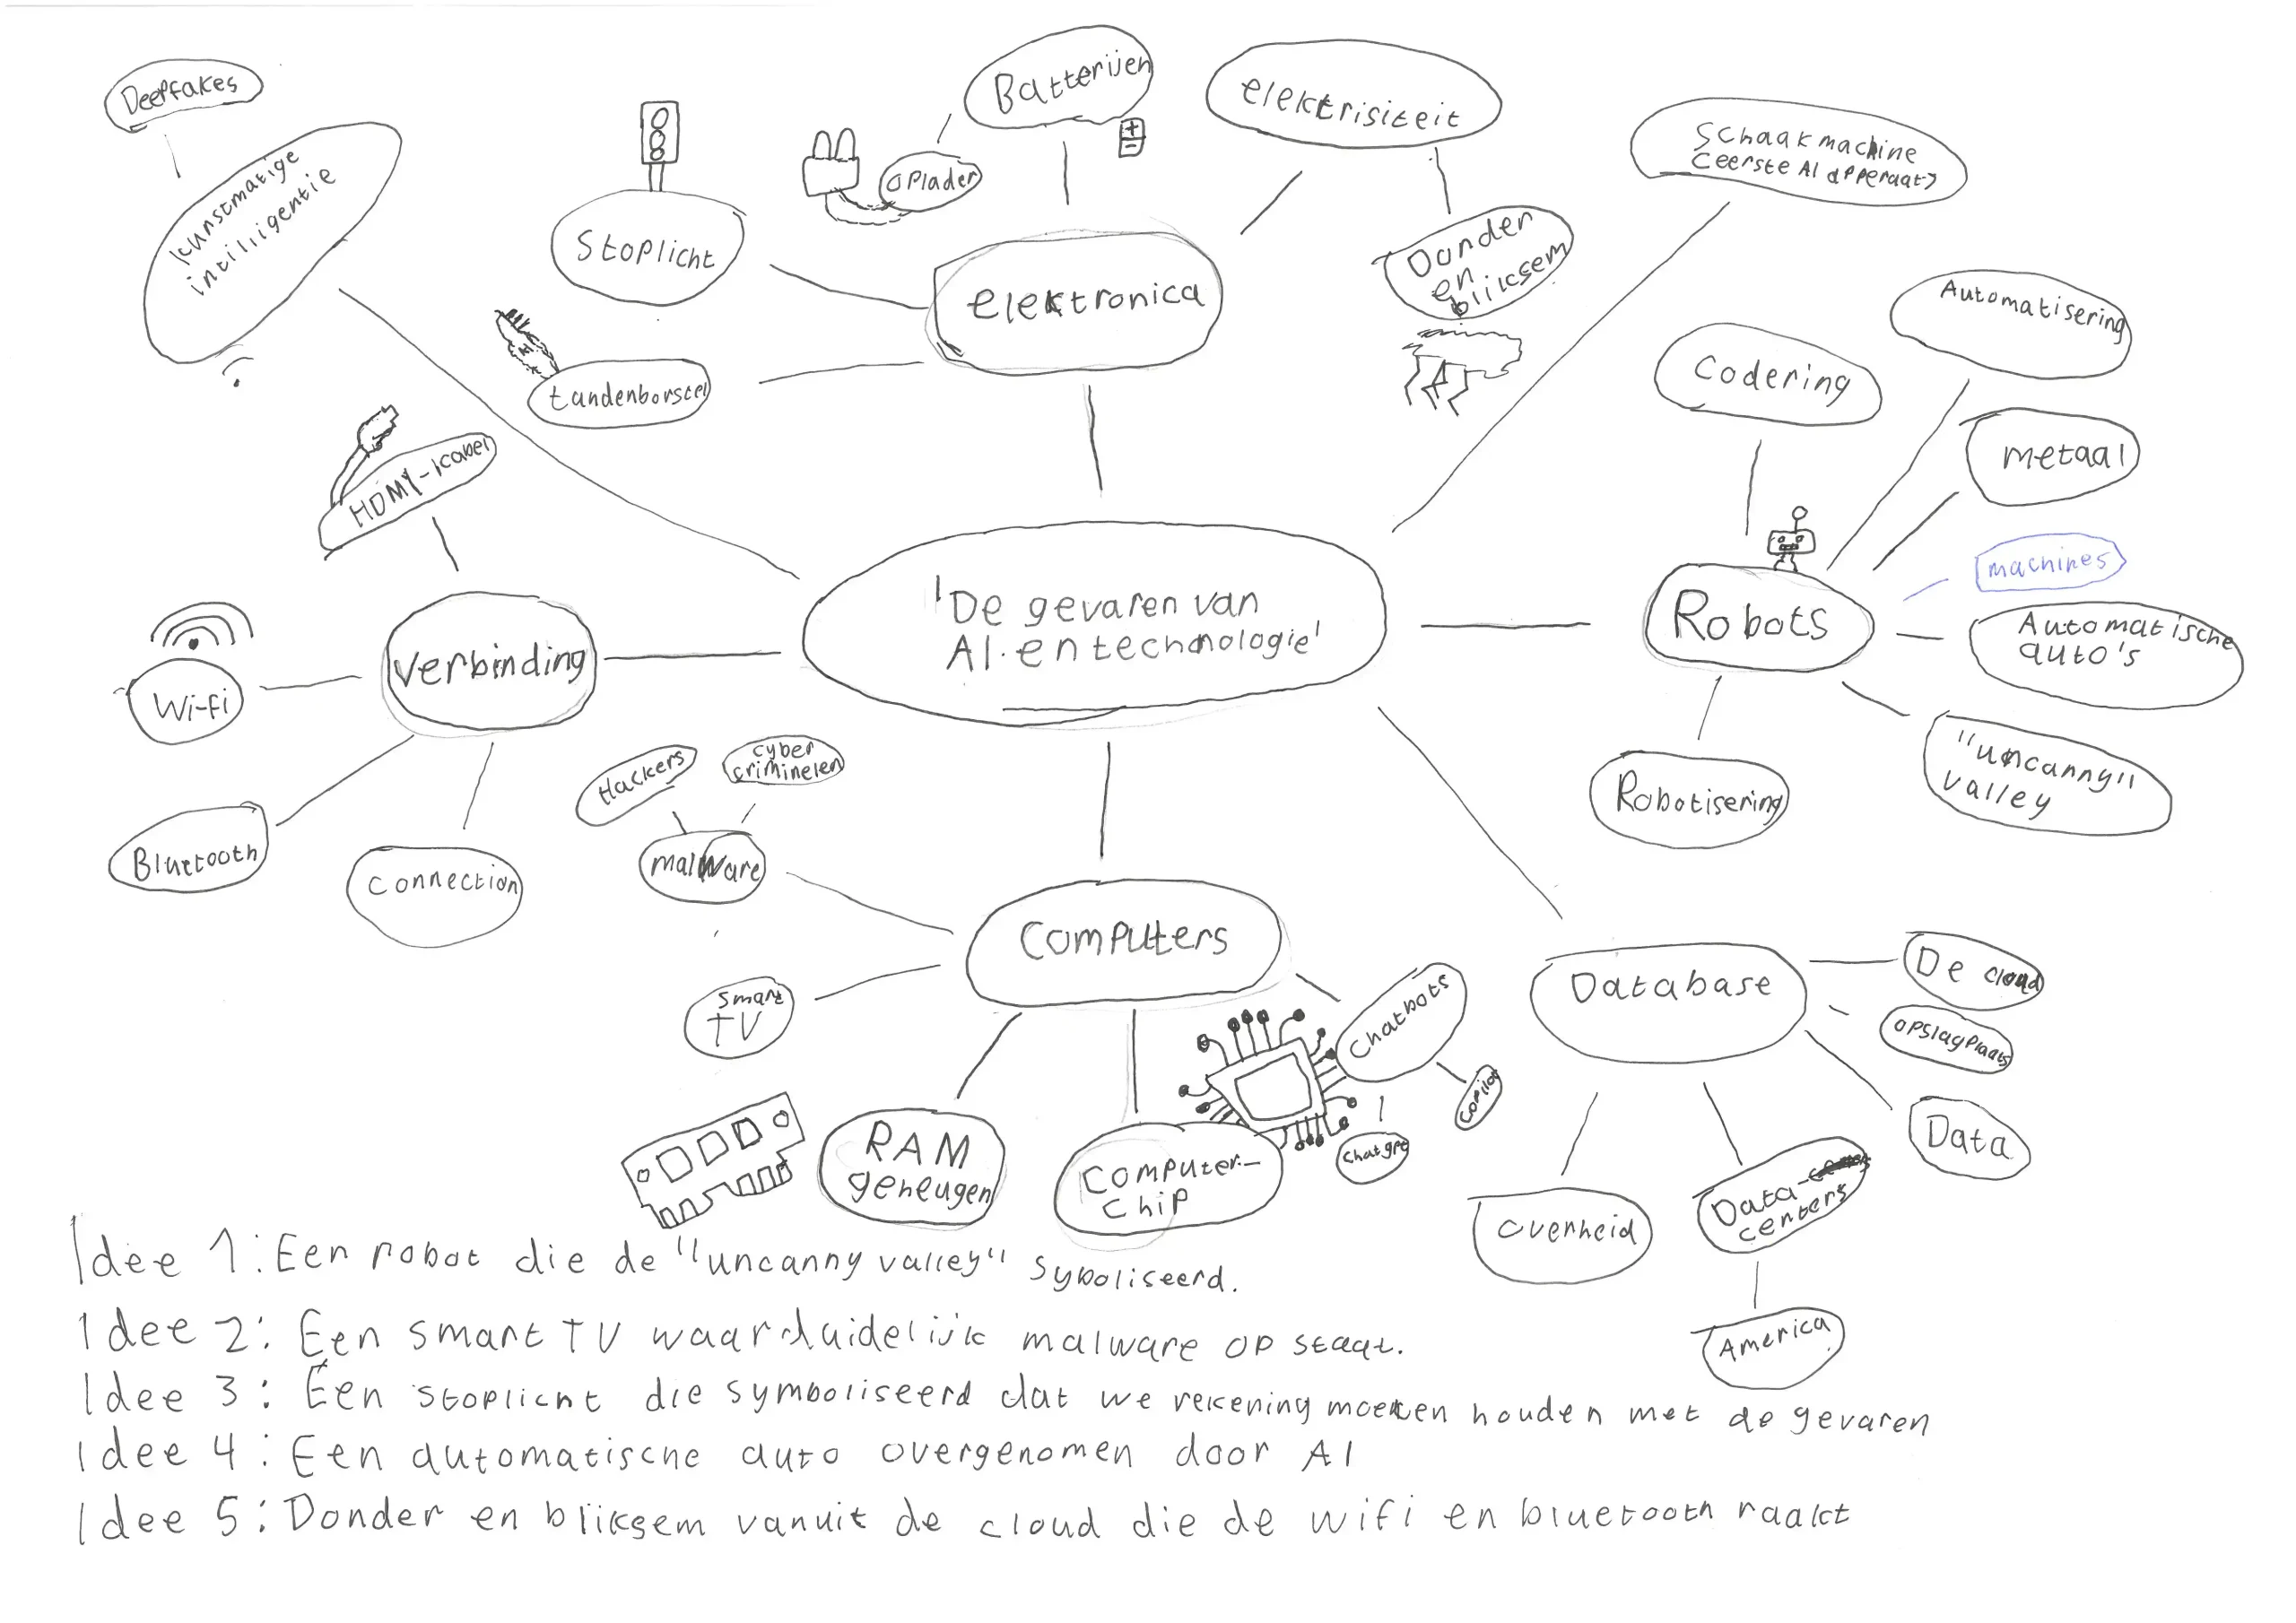 Deepfakes
kunstmatige
intilligentie
Stoplicht
oplader
Batterijen
elektrisiteit
Donder
en
bliksem
Schaakmachine
(eerste AI apperaat)
elektronica
tandenborstel
HDMY-kabel
Automatisering
Codering
metaal
machines
Robots
Automatische
auto's
"uncanny"
valley
Robotisering
'De gevaren van
AI en technologie'
verbinding
Wi-fi
Bluetooth
connection
Hackers
cyber
criminelen
malware
Computers
smart
TV
RAM
geheugen
Computer-
chip
Chatbots
Copilot
Chatgpt
Database
De cloud
opslagplaats
Data
overheid
Data-
centers
America
Idee 1: Een robot die de "uncanny valley" syboliseerd.
Idee 2: Een smart TV waar duidelijk malware op staat.
Idee 3: Een stoplicht die symboliseerd dat we rekening moeten houden met de gevaren
Idee 4: Een automatische auto overgenomen door AI
Idee 5: Donder en bliksem vanuit de cloud die de wifi en bluetooth raakt